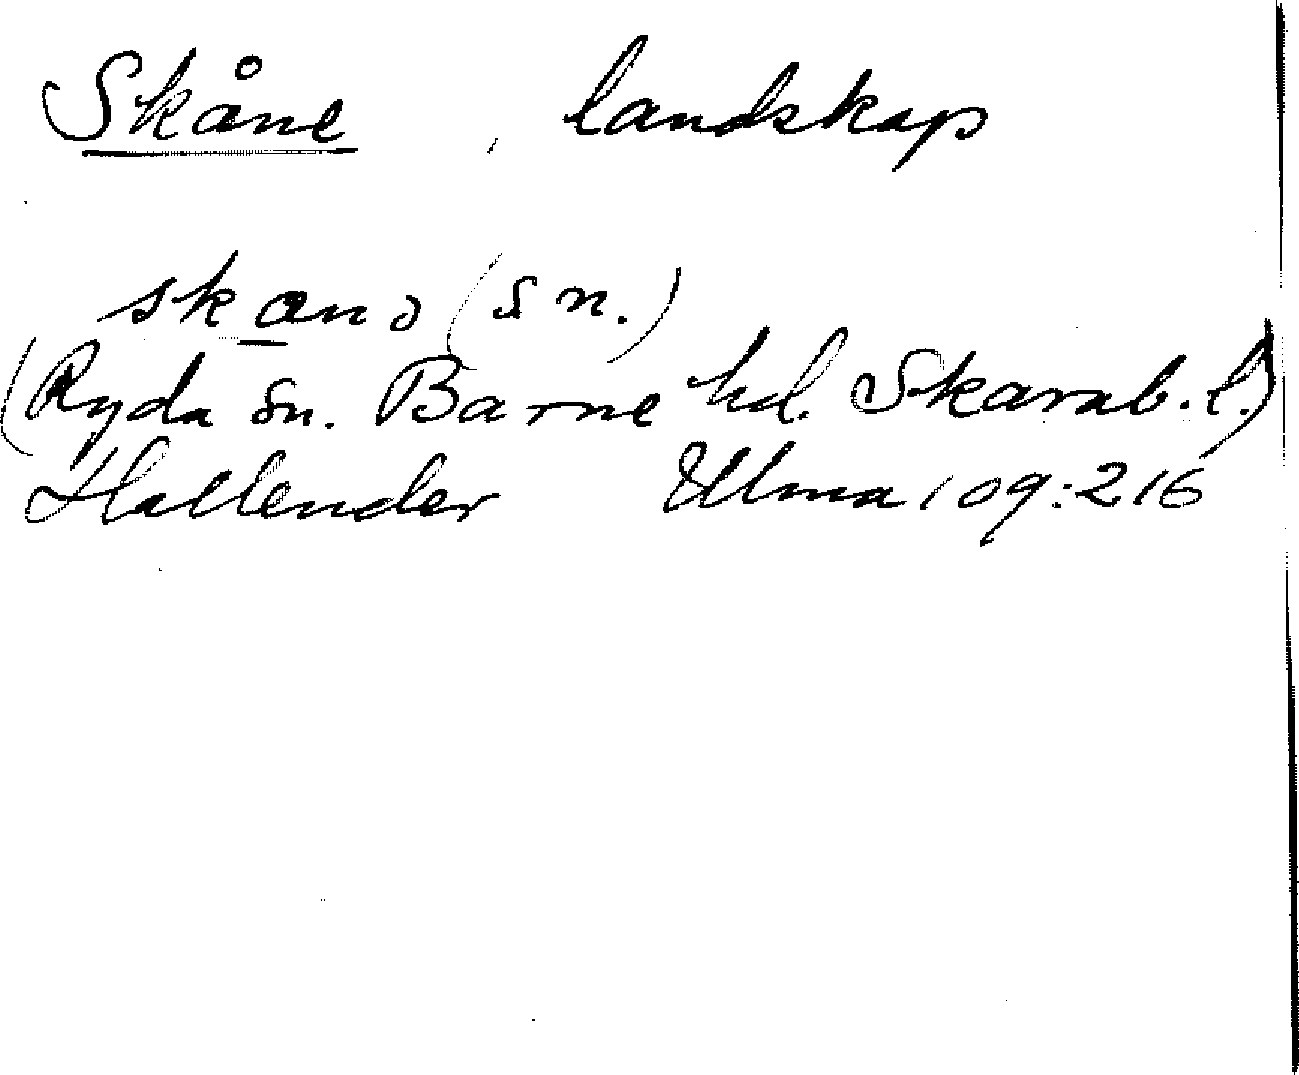 Skåne, landskap
skans (s n.)
(Ryda sn. Barne hd. Skarab. l.)
Hallender Ulma 109:216